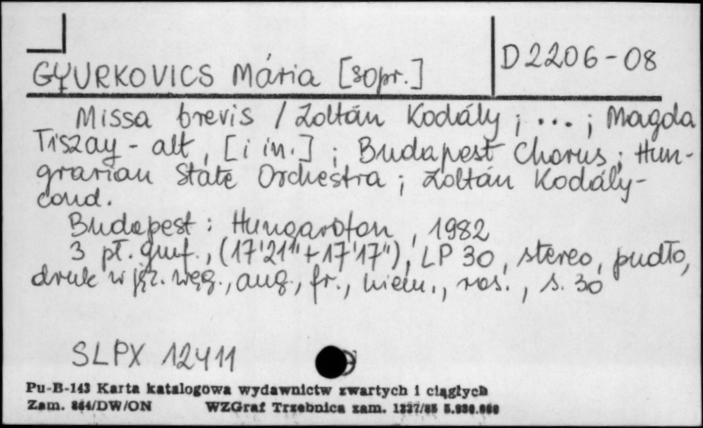 GYURKOVICS Mária [sopr.]
D2206-08
Missa brevis / Zoltán Kodály ; ... ; Magda
Tiszay - alt, [i in.] ; Budapest Chorus ; Hun-
grarian State Orchestra ; Zoltán Kodály -
cond.
Budapest : Hungaroton, 1982
3 pł. gmf., (17'21"+17'17"), LP 30, stereo, pudło,
druk w jęz. węg., ang., fr., niem., ros., s. 30
SLPX 12411
Pu-B-143 Karta katalogowa wydawnictw zwartych i ciągłych
Zam. 844/DW/ON WZGraf Trzebnica zam.